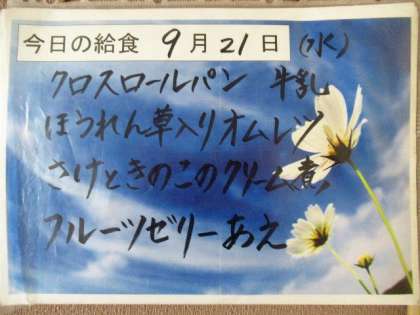 今日の給食 9月21日(水)
クロスロールパン 牛乳
ほうれん草入りオムレツ
さけときのこのクリーム煮
フルーツゼリーあえ